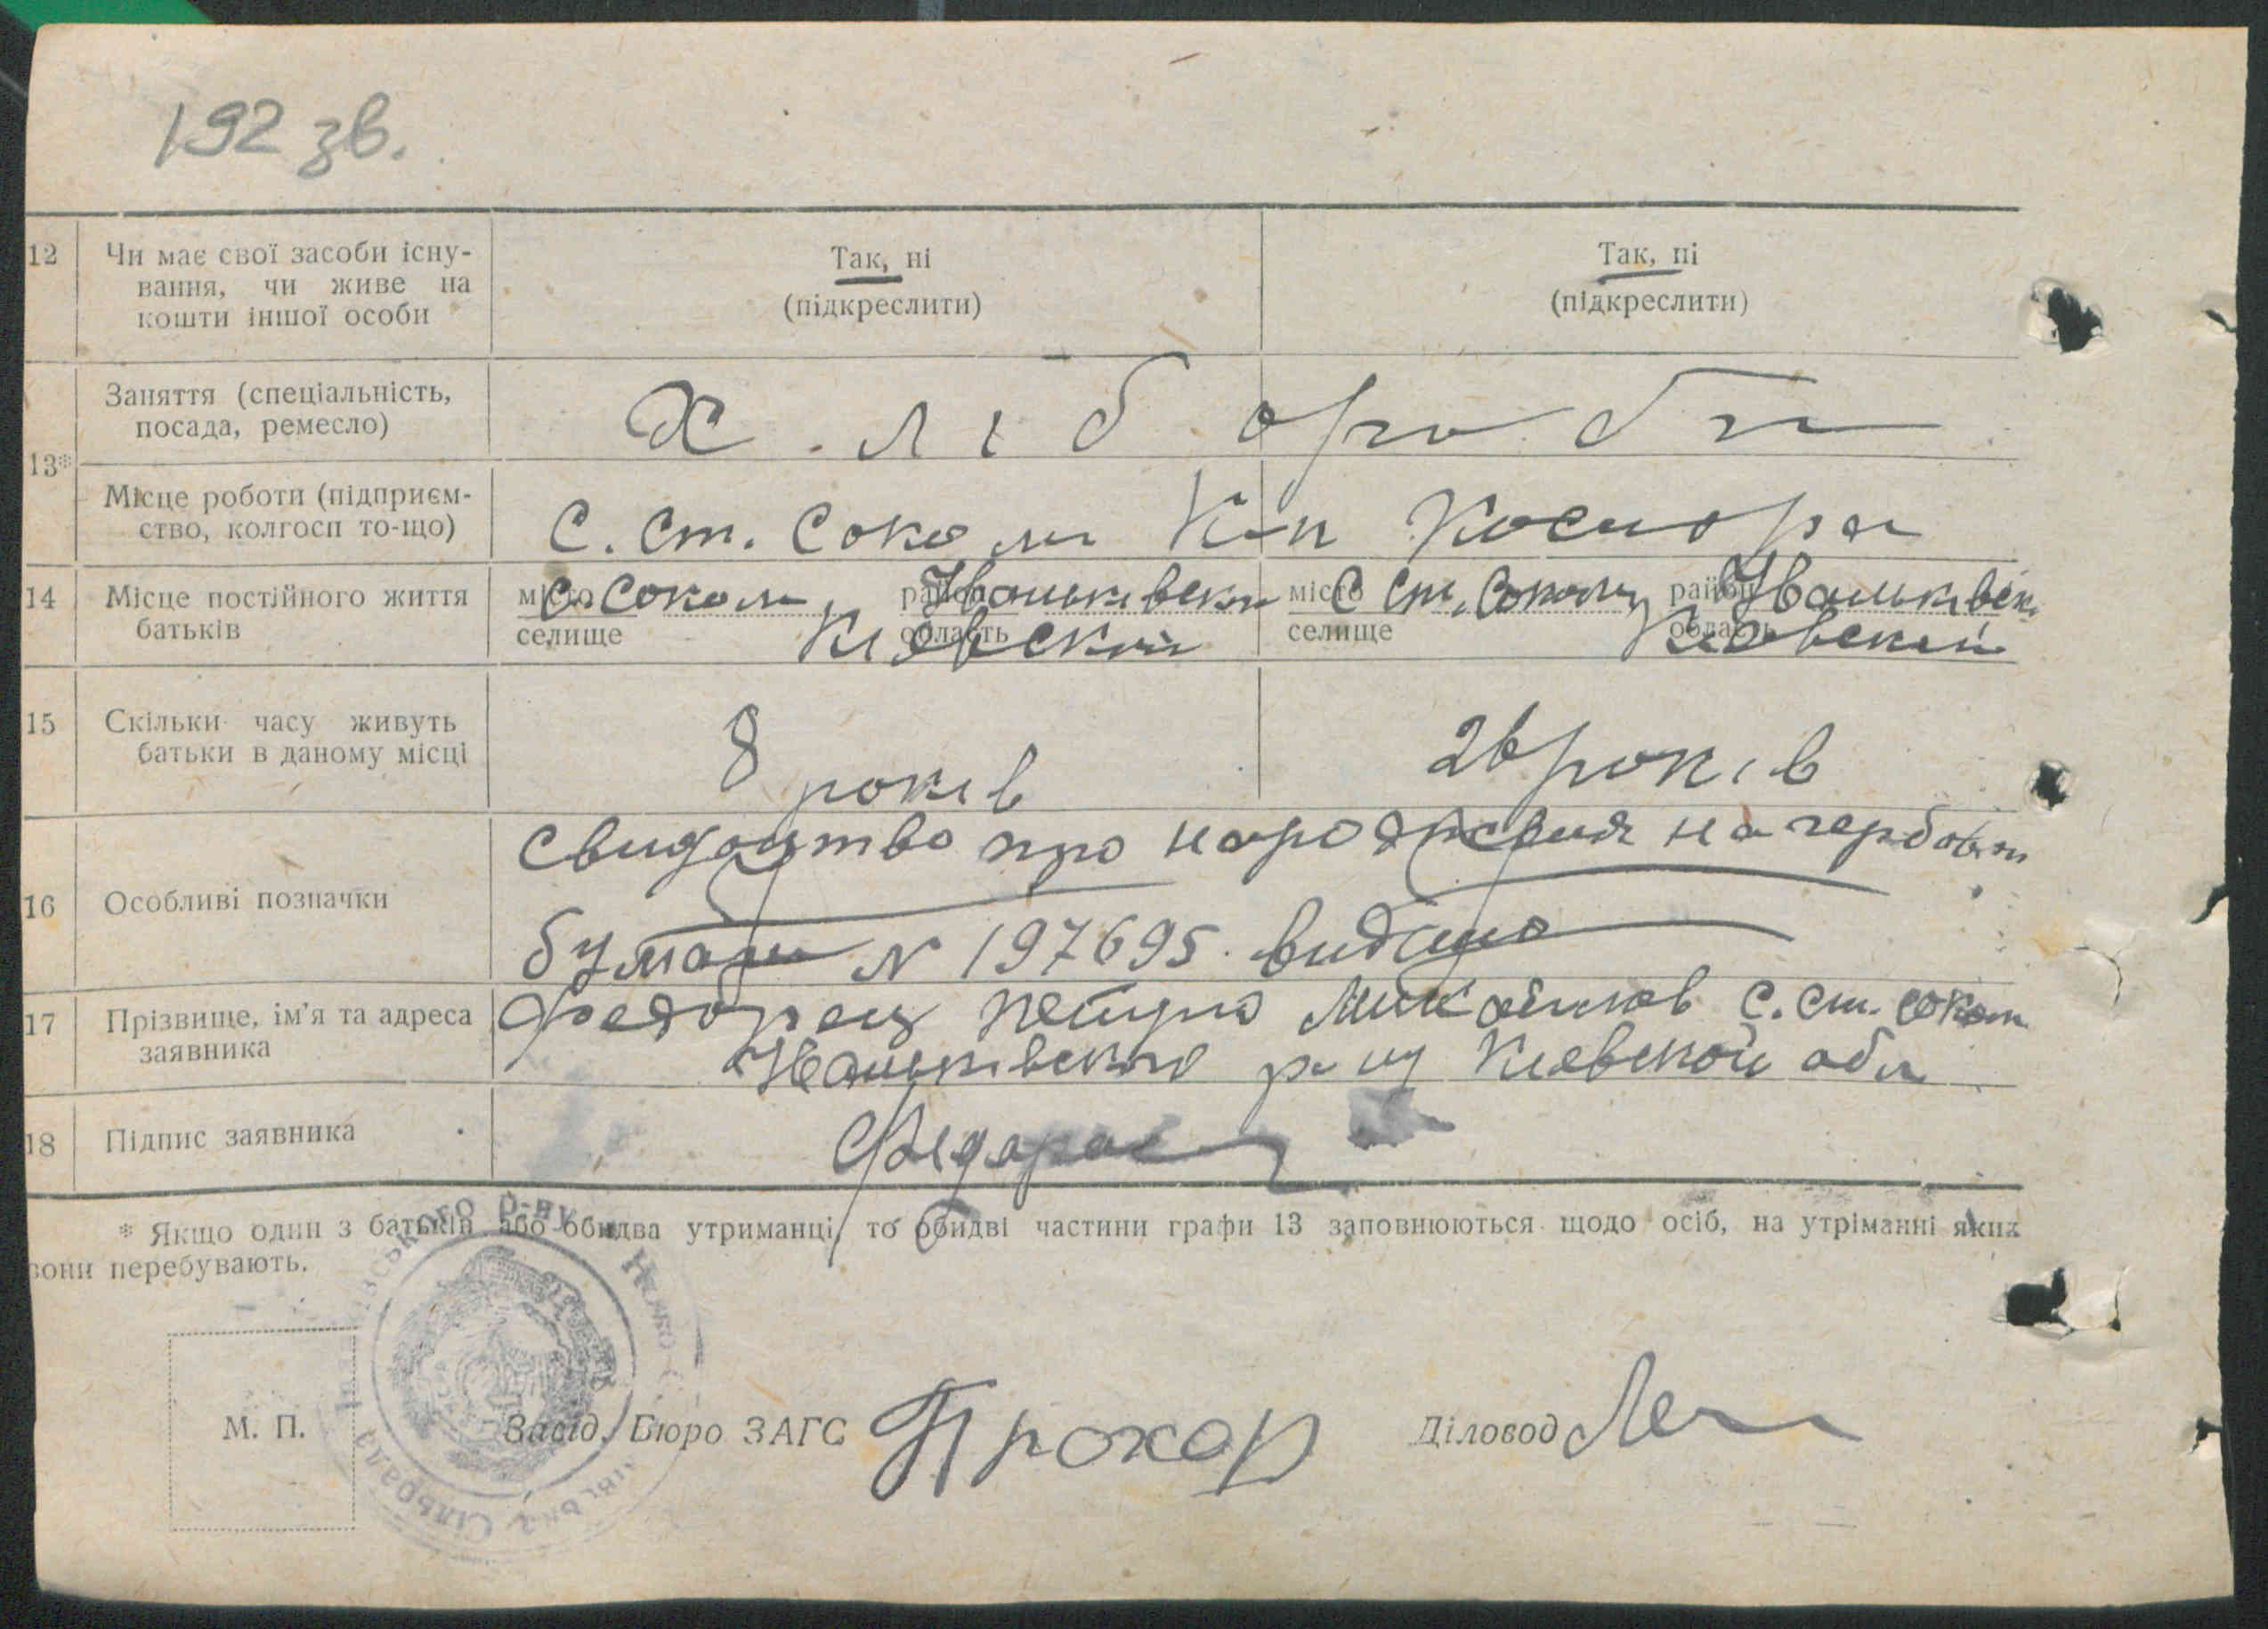 192 зв.
12 Чи має свої засоби існу-
вання, чи живе на
кошти іншої особи
Так, ні
(підкреслити)
Так, ні
(підкреслити)
13* Заняття (спеціальність,
посада, ремесло)
Хлібороби
Місце роботи (підприєм-
ство, колгосп то-що)
С. Ст. Соколи К-п Косиора
14 Місце постійного життя
батьків
місто С. Соколи район Іваньківськ
селище область Київской
місто С Ст. Соколи район Іваньківськ
селище область Київской
15 Скільки часу живуть
батьки в даному місці
8 років
26 років
16 Особливі позначки
свидоцтво про народження на гербовой
бумаги N 197695. видано
17 Прізвище, ім'я та адреса
заявника
Федорец Петро Михайлов с. ст. сокол
Іваньківского р-ну Київской обл
18 Підпис заявника
Федорец
* Якщо один з батьків або обидва утриманці, то обидві частини графи 13 заповнюються щодо осіб, на утріманні яких
вони перебувають.
М. П.
Завід. Бюро ЗАГС Прохор
Діловод
Сільрада
р-ну